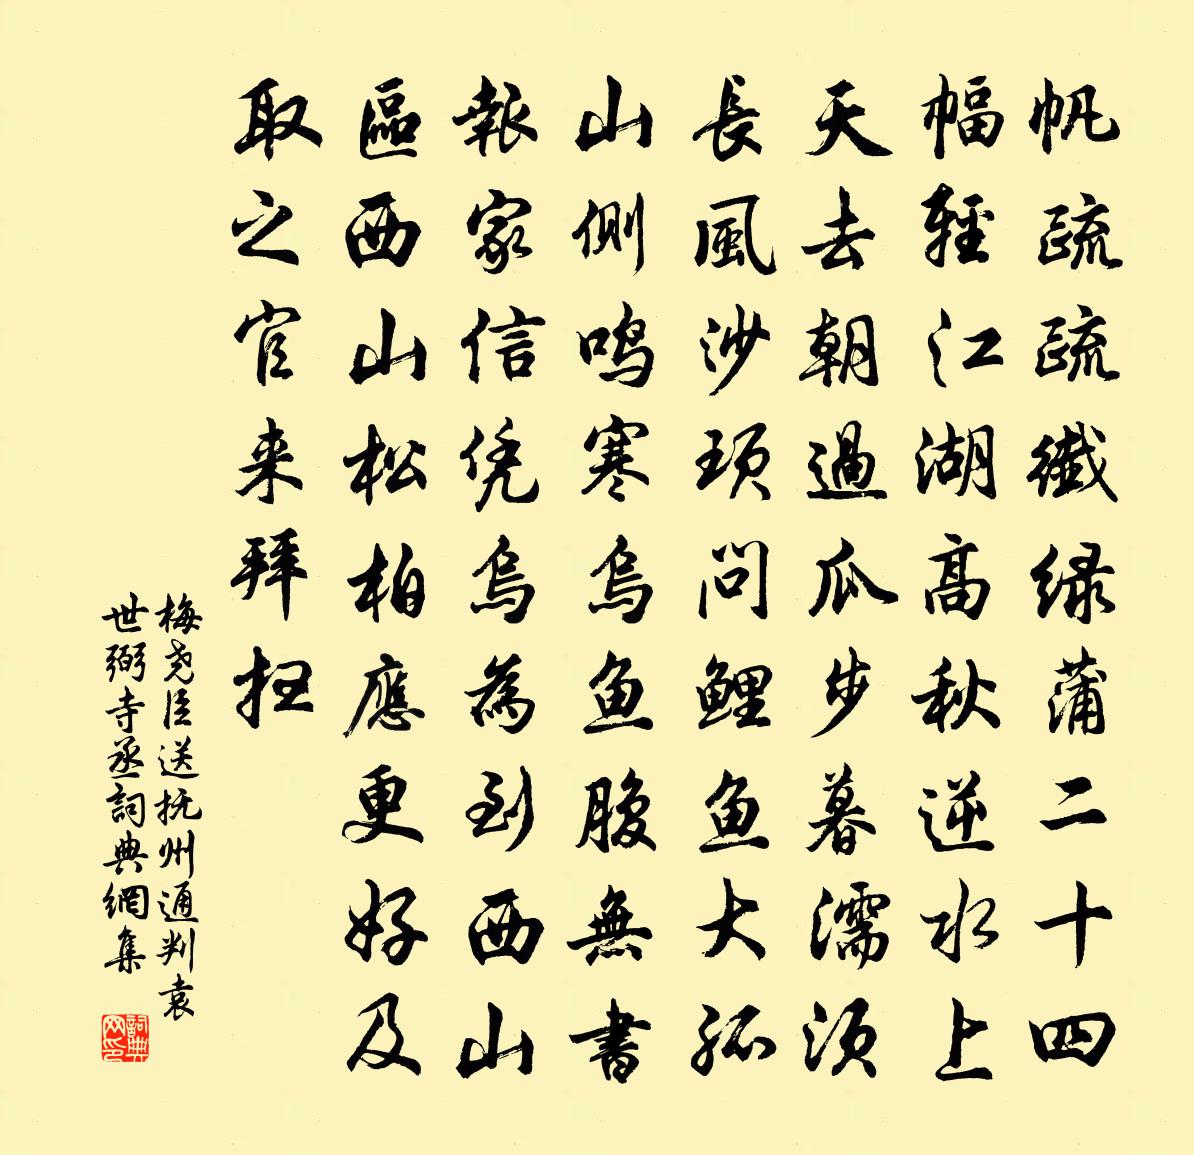 帆疏疏纖绿蒲二十四
幅輕江湖高秋逆水上
天去朝過瓜步暮濡須
長風沙頭問鯉鱼大孤
山側鸣寒烏鱼腹無書
報家信凭烏為到西山
區西山松柏應更好及
取之官来拜扫
梅尧臣送抚州通判袁
世弼寺丞詞典網集
詞典
网印